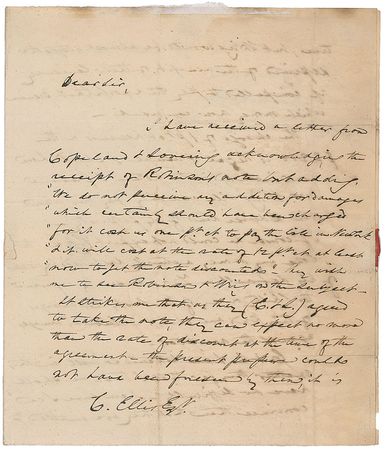 Dear Sir,
I have received a letter from
Copeland & Lovering acknowledging the
receipt of Robinson's note but adding,
"We do not perceive any addition for damages
"which certainly should have been charged
"for it cost us one pr ct to pay the bill in
"& it will cost at the rate of 12 pr ct at least
"now to get the note discounted" They wish
me to see Robinson & Wm on the subject—
It strikes me that as they (C & L) agreed
to take the note, they can expect no more
than the rate of discount at the time of the
agreement — the present pressure could
not have been foreseen by them, it is
C. Ellis Esqr.